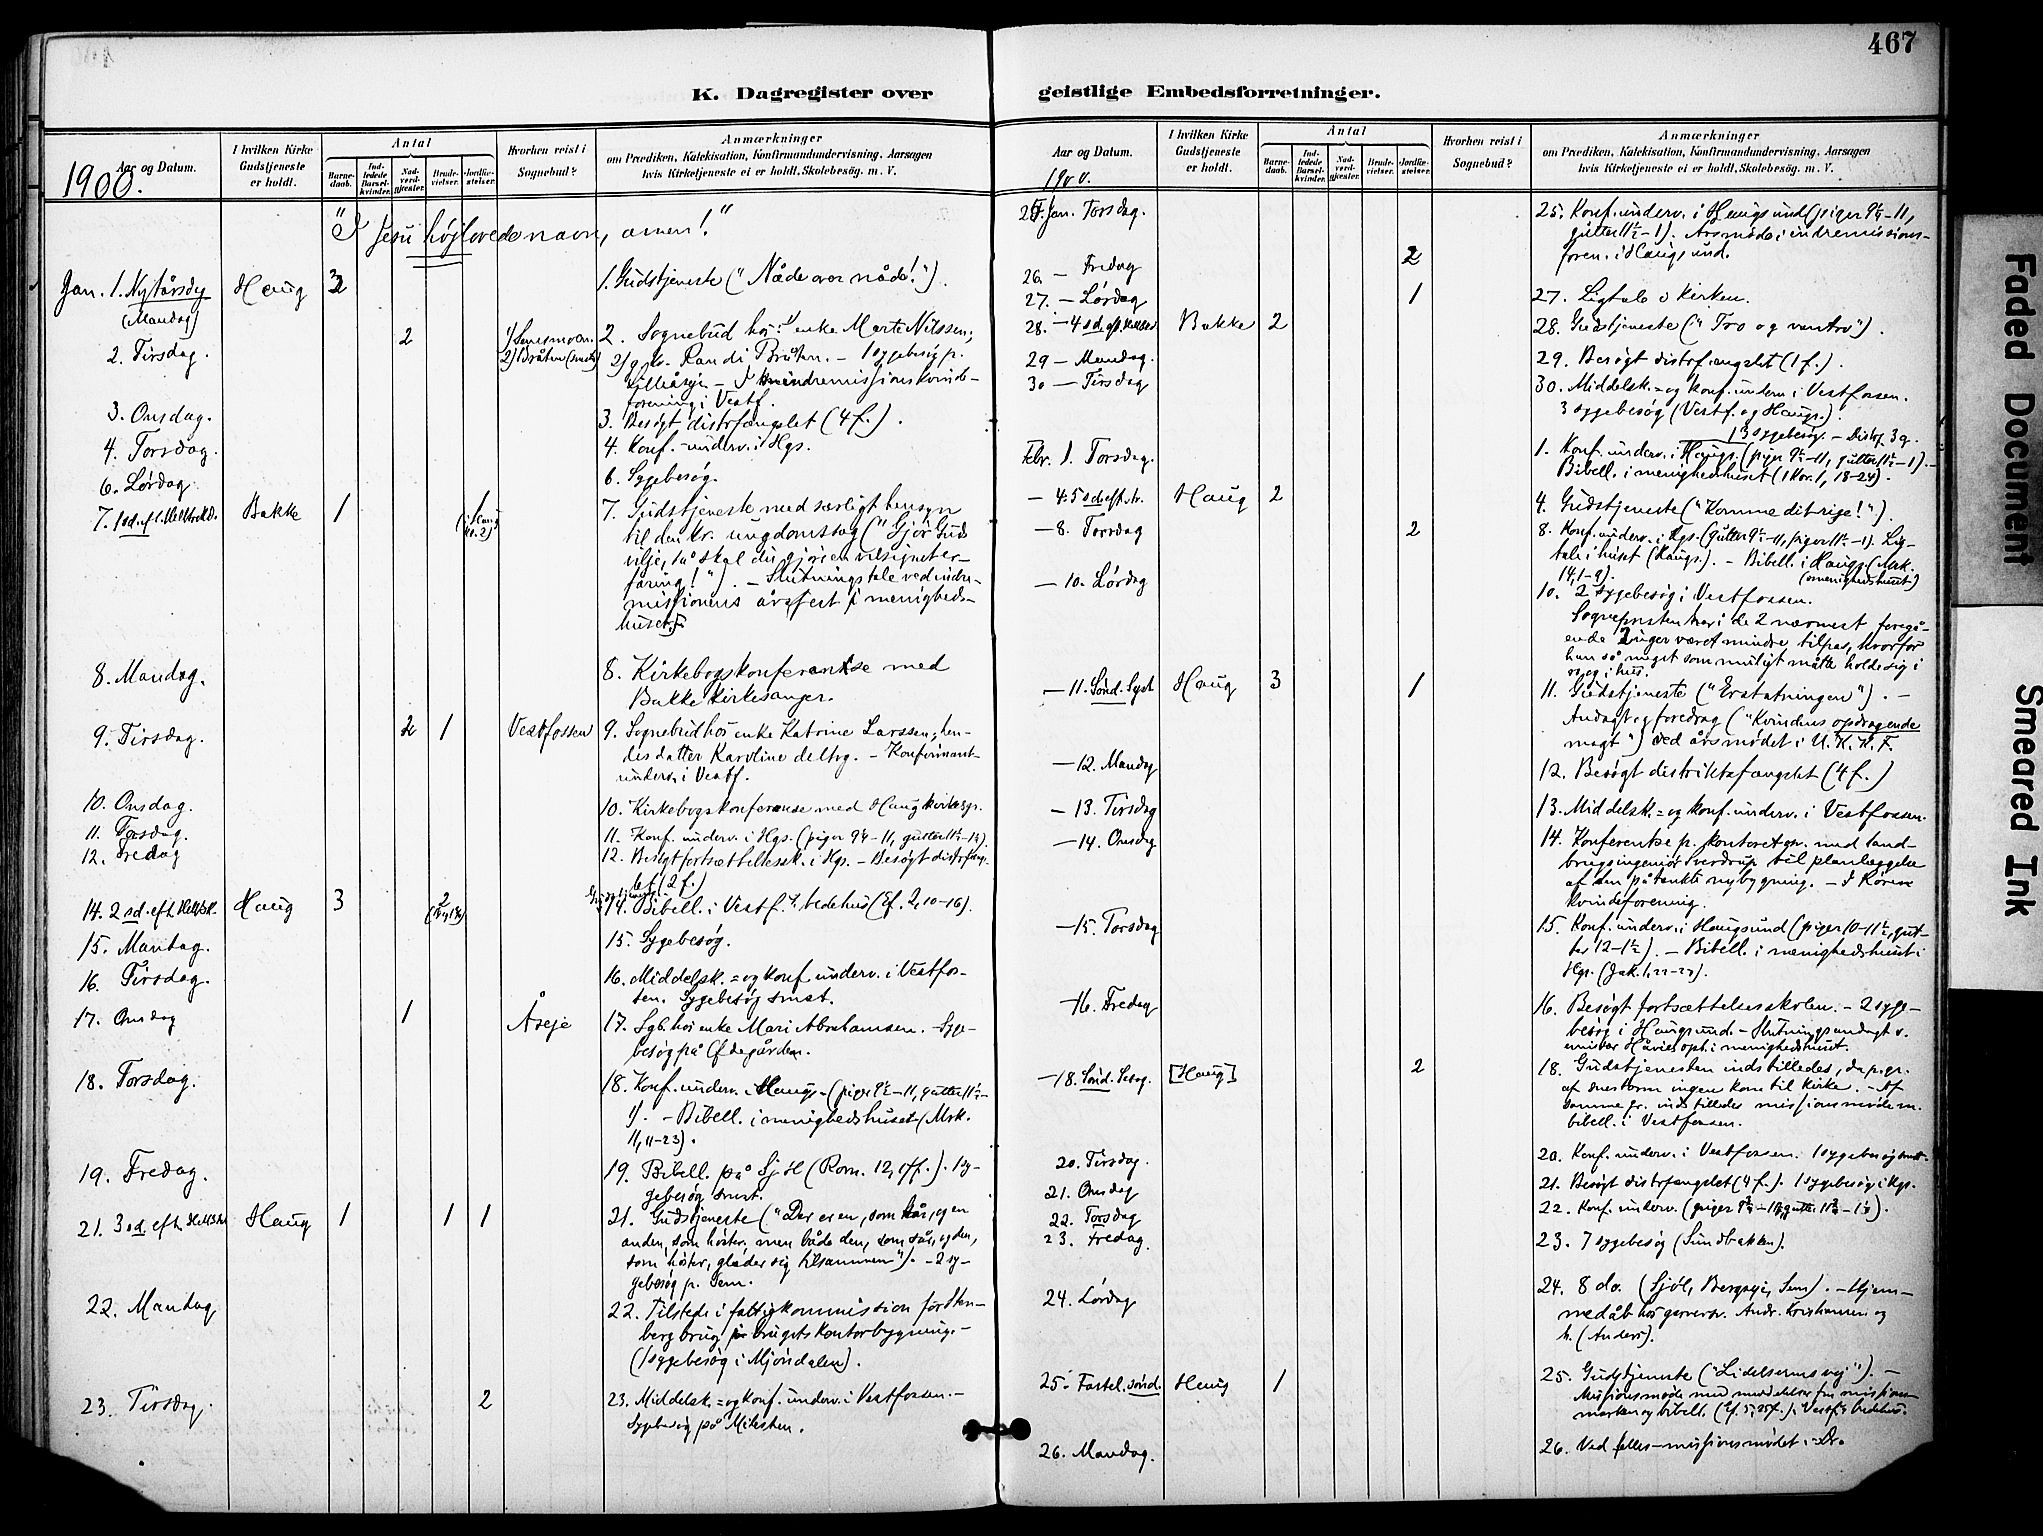 467
K. Dagregister over
Aar og Datum.
1900.
I hvilken Kirke
Gudstjeneste
er holdt.
Antal
Barne-
daab.
Ind-
ledede
Barsel-
kvinder.
Nad-
verd-
gjester.
Brude-
vielser.
Jordfæ-
stelser.
Hvorhen reist i
Sognebud?
Anmærkninger
om Prædiken, Katekisation, Konfirmandundervisning, Aarsagen
hvis Kirketjeneste ei er holdt, Skolebesög. m. V.
"I Jesu højlovede navn, amen!"
Jan. 1. Nytårsdg Haug 1. Gudstjeneste ("Nåde over nåde!").
(Mandag)
2. Tirsdag. 2 2. Sognebud hos enke Marte Nilssen;
2) Randi Bråten. - 1 sygebesøg p.
indremissionskvinde-
forening i Vestf.
3. Onsdag. 3. Besøgt distrfængslet (4 f.).
4. Torsdag. 4. Konf.-underv. i Hgs.
6. Lørdag 6. Sygebesøg.
7. Bakke 1 7. Gudstjeneste med særligt hensyn
til den kr. ungdomssag ("Gjør Guds
vilje, så skal du gjøre en velsignet er-
faring!"). - Slutningstale ved indre-
missionens årsfest i menigheds-
huset.
8. Mandag. 8. Kirkebogskonferentse med
Bakke kirkesanger.
9. Tirsdag. 2 1 Vestfossen 9. Sognebud hos enke Katrine Larssen; hen-
des datter Karoline deltog. - Konfirmant-
underv. i Vestf.
10. Onsdag. 10. Kirkebogskonferense med Haug
11. Torsdag. 11. Konf. underv. i Hgs.
12. Fredag 12. Besøgt fortsættelsessk. i Hgs. - Besøgt distrfængs-
let (2 f.)
14. 2 sd. eft. Haug 3 14. Bibell. i Vestf. bedehus (Ef. 2, 10-16).
15. Mandag. 15. Sygebesøg.
16. Tirsdag. 16. Middelsk.= og konf. underv. i Vestfos-
sen. Sygebesøg smst.
17. Onsdag 1 Åseje 17. Sgb. hos enke Mari Abrahamsen. Syge-
besøg på
18. Torsdag. 18. Konf. underv. i Haugs.
1). - Bibell. i menighedshuset (Mrk.
11, 11-23).
19. Fredag. 19. Bibell. på (Rom. 12, 1 ff.). 1 sy-
gebesøg smst.
21. 3 sd. eft. Haug 1 1 1 21. Gudstjeneste ("Der er en, som sår, og en
anden, som høster, men både den, som sår, og den,
som høster, glæder sig tilsammen"). - 2 sy-
gebesøg p. Sem.
22. Mandag 22. Tilstede i fattigkommission
brugets kontorbygning. -
(1 sygebesøg i Mjøndalen).
23. Tirsdag. 2 23. Middelsk.= og konf. underv. i Vestfossen. -
Sygebesøg på
geistlige Embedsforretninger.
Aar og Datum.
1900.
I hvilken Kirke
Gudstjeneste
er holdt.
Antal
Barne-
daab.
Ind-
ledede
Barsel-
kvinder.
Nad-
verd-
gjester.
Brude-
vielser.
Jordfæ-
stelser.
Hvorhen reist i
Sognebud?
Anmærkninger
om Prædiken, Katekisation, Konfirmandundervisning, Aarsagen
hvis Kirketjeneste ei er holdt, Skolebesög. m. V.
Jan. Torsdag. 25. Konf. underv. i Haugsund (piger 9½-11,
gutter 11½-1). Årsmøde i indremissions-
foren. i Haugsund.
26. - Fredag 2
27. - Lørdag 1 27. Ligtale i kirken.
28. - 4 sd. eft. Bakke 2 28. Gudstjeneste ("Tro og vantro").
29 - Mandag. 29. Besøgt distrfængslet (1 f.).
30 - Tirsdag 30. Middelsk.= og konf. underv. i Vestfossen.
3 sygebesøg (Vestf. og Haugs.).
Febr. 1. Torsdag. 1. Konf. underv. i Haugs. (piger 9½-11, gutter 11½-1). -
Bibell. i menighedshuset (1 Kor. 1, 18-24).
- 4. 5 sd. eft. Haug 2 4. Gudstjeneste ("Komme dit rige!").
- 8. Torsdag 2 8. Konf. underv. i Hgs. (gutter 9½-11, piger 11½-1). Lig-
tale i huset (Haugs.). - Bibell. i Haugs. (Mrk.
14, 1-9). (menighedshuset)
- 10. Lørdag 10. 2 sygebesøg i Vestfossen.
Sognepresten har i de 2 nærmest foregå-
ende uger været mindre tilpas, hvorfor
han så meget som muligt måtte holde sig i
ro og i hus.
- 11. Sønd. Haug 3 1 11. Gudstjeneste ("Erstatningen"). -
Andagt og foredrag ("Kvindens opdragende
magt") ved årsmødet i U. K. K. F.
- 12. Mandag 12. Besøgt distriktsfængslet (4 f.)
- 13. Tirsdag 13. Middelsk.= og konf. underv. i Vestfossen.
- 14. Onsdag 14. Konferentse p. kontoret med land-
brugsingeniør til planlæggelse
af den påtænkte nybygning. - I
kvindeforening.
- 15. Torsdag 15. Konf. underv. i Haugsund (piger 10-11½, gut-
ter 12-1½). - Bibell. i menighedshuset i
Hgs. (Jak. 1, 22-27).
- 16. Fredag 16. Besøgt fortsættelsesskolen. - 2 syge-
besøg i Haugsund. - Slutningsandagt v.
opl. i menighedshuset.
- 18. Sønd. [Haug] 2 18. Gudstjenesten indstilledes, da p. gr.
af snestorm ingen kom til kirke. - Af
samme gr. indstilledes missionsmøde m.
bibell. i Vestfossen.
20. Tirsdag. 20. Konf. underv. i Vestfossen. 1 sygebesøg smst.
21. Onsdag 21. Besøgt distrfængslet (4 f.). 1 sygebesøg i Hgs.
22. Torsdag 22. Konf. underv.
23. Fredag. 23. 7 sygebesøg (Sundbakken).
24. Lørdag 24. 8 do. - Hjem-
medåb hos
h. (Anders).
25. Fastel. sønd. Haug 1 25. Gudstjeneste ("Lidelsens vej"). -
Missionsmøde med meddelelser fra missions-
marken og bibell. i Vestf.s bedehus.
26. Mandag. 26. Ved fælles-missionsmødet i Dr.
Faded Document
Smeared Ink